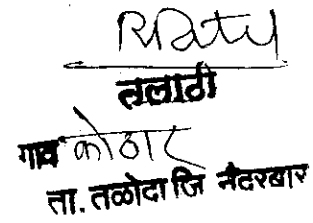 तलाठी
गाव कोठार
ता. तळोदा जि नंदरबार